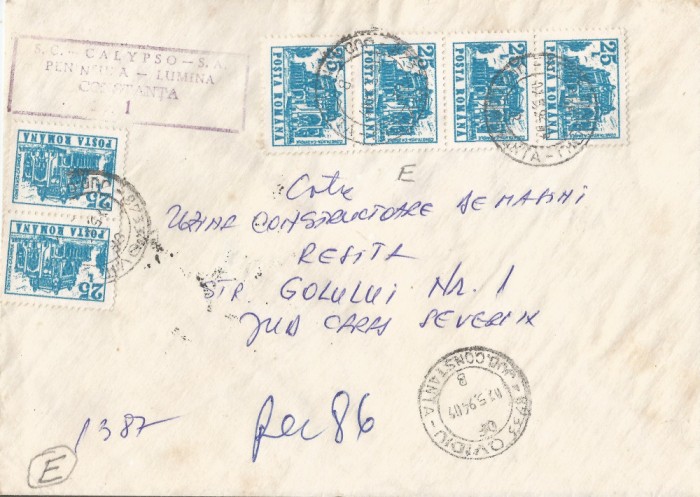 S.C. - CALYPSO - S.A.
PENINSULA - LUMINA
CONSTANŢA
1
25 POSTA ROMANA
25 POSTA ROMANA
25 POSTA ROMANA
25 POSTA ROMANA
POSTA ROMANA 25
POSTA ROMANA 25
E
Catre
UZINA CONSTRUCTOARE DE MASINI
RESITA
STR. GOLULUI NR. 1
JUD CARAS SEVERIN
8933 OVIDIU - JUD. CONSTANTA
07.5.94.07
OF
B
1387
Rec 86
E